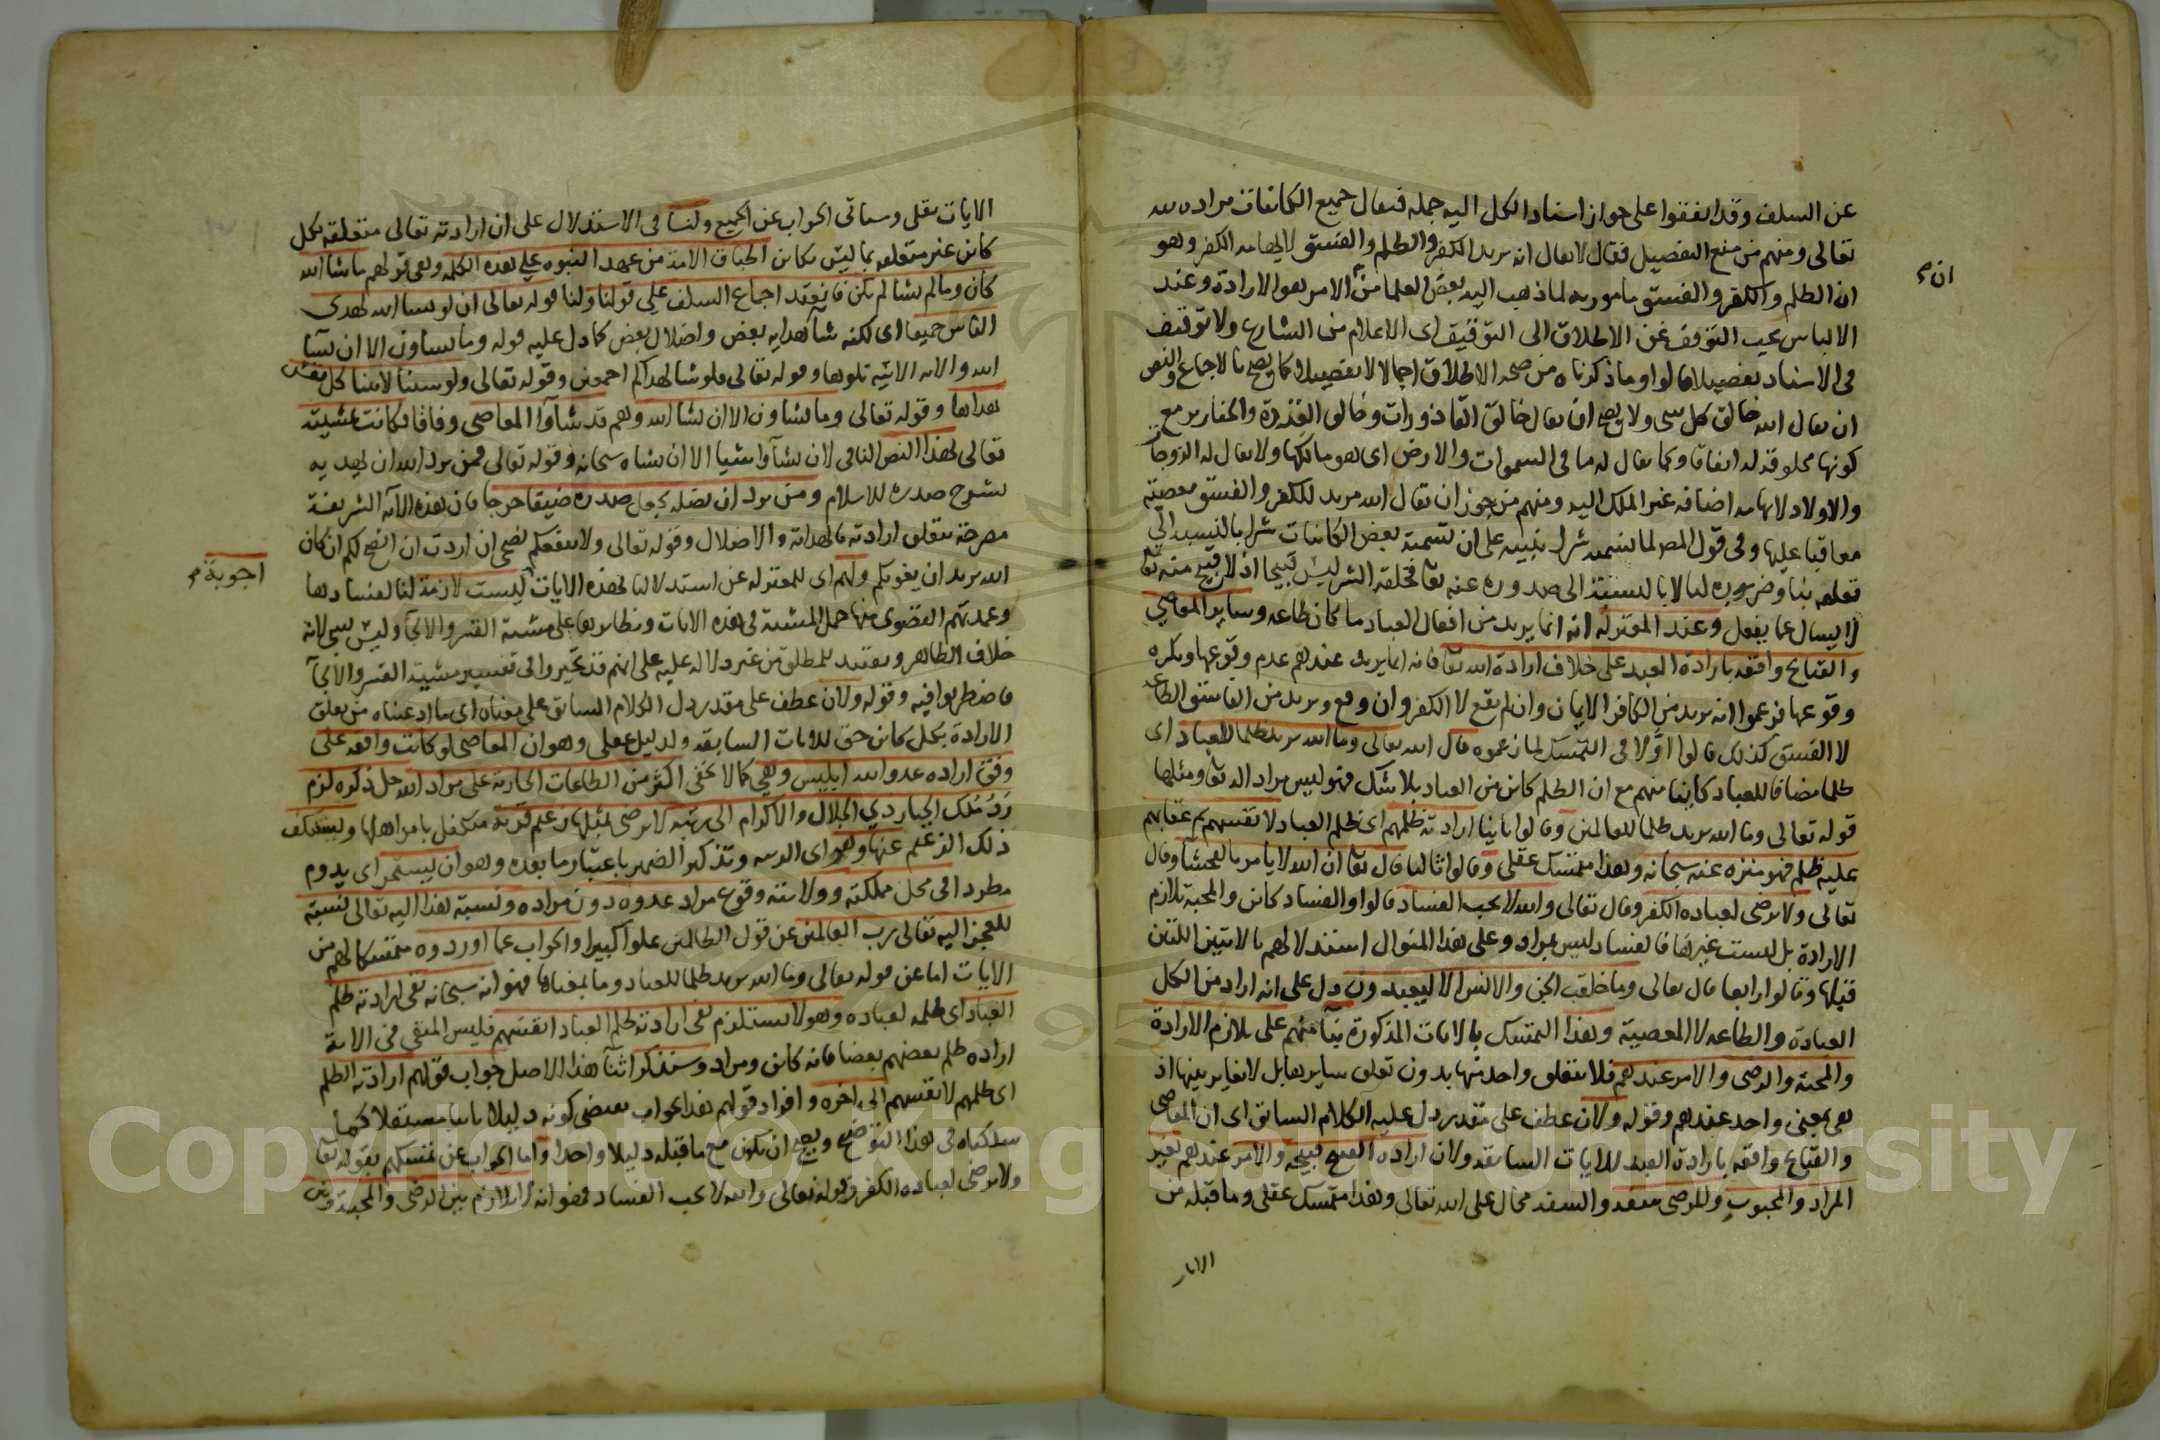 عن السلف وقد اتفقوا على جواز اسناد الكل اليه جملة فيقال جميع الكائنات مرادة لله
تعالى ومنهم من منع التفصيل فقال لا يقال انه يريد الكفر والظلم والفسق لايهامه الكفر وهو
ان الظلم والكفر والفسق مامور به لما ذهب اليه بعض العلما من ان الامر هو الارادة وعند
ان صح
الالباس يجب التوقف عن الاطلاق الى التوقيف اى الاعلام من الشارع ولا توقيف
فى الاسناد تفصيلا قالوا وما ذكرناه من صحة الاطلاق اجمالا لا تفصيلا كما يصح بالاجماع والنص
ان يقال الله خالق كل شى ولا يصح ان يقال خالق القاذورات وخالق القردة والخنازير مع
كونها مخلوقة له اتفاقا وكما يقال له ما فى السموات والارض اى هو مالكها ولا يقال له الزوجات
والاولاد لايهامه اضافة غير الملك اليه ومنهم من جوز ان يقال الله مريد للكفر والفسق معصية
معاقبا عليها وفى قول المص لما نسميه شرا تنبيه على ان تسمية بعض الكائنات شرا بالنسبة الى
تعلقه بنا وضرره لنا لا بالنسبة الى صدوره عنه تعا فخلقه الشر ليس قبيحا اذ لا قبح منه تعا
لا يسال عما يفعل وعند المعتزلة انه انما يريد من افعال العباد ما كان طاعة وساير المعاصى
والقبايح واقعة بارادة العبد على خلاف ارادة الله تعا فانه انما يريد عندهم عدم وقوعها ويكره
وقوعها فزعموا انه يريد من الكافر الايمان وان لم يقع لا الكفر وان وقع ويريد من الفاسق الطاعة
لا الفسق كذلك قالوا اولا فى التمسك لما زعموه قال الله تعالى وما الله يريد ظلما للعباد اى
ظلما مضافا للعباد كاينا منهم مع ان الظلم كائن من العباد بلا شك فهو ليس مراد الله تعا ومثلها
قوله تعالى وما الله يريد ظلما للعالمين وقالوا ثانيا ارادته ظلمهم اى ظلم العباد لانفسهم ثم عقابهم
عليه ظلم فهو منزه عنه سبحانه وهذا متمسك عقلى وقالوا ثالثا قال تعا ان الله لا يامر بالفحشا وقال
تعالى ولا يرضى لعباده الكفر وقال تعالى والله لا يحب الفساد قالوا والفساد كائن والمحبة تلازم
الارادة بل ليست غيرها فالفساد ليس بمراد وعلى هذا المنوال استدلالهم بالايتين اللتين
قبلها وقالوا رابعا قال تعالى وما خلقت الجن والانس الا ليعبدون دل على انه اراد من الكل
العبادة والطاعة لا المعصية وهذا التمسك بالايات المذكورة بنآ منهم على تلازم الارادة
والمحبة والرضى والامر عندهم فلا يتعلق واحد منها بدون تعلق ساير بقابل لا تغاير بينها اذ
هى بمعنى واحد عندهم وقوله ولان عطف على مقدر دل عليه الكلام السابق اى ان المعاصى
والقبايح واقعة بارادة العبد للايات السابقة ولان ارادة القبيح قبيحة والامر عندهم بغير
المراد والمحبوب وللرضى سفه والسفه محال على الله تعالى وهذا متمسك عقلى وما قبله من
الايات
الايات نقلى وسياتى الجواب عن الجميع ولنا فى الاستدلال على ان ارادته تعالى متعلقة بكل
كائن غير متعلقة بما ليس بكائن اطباق الامة من عهد النبوة على هذه الكلمة وهى قولهم ما شا الله
كان وما لم يشا لم يكن فانعقد اجماع السلف على قولنا ولنا قوله تعالى ان لو يشا الله لهدى
الناس جميعا اى لكنه شآ هداية بعض واضلال بعض كما دل عليه قوله وما تشاون الا ان يشآ
الله والاية الاتية تلوها وقوله تعالى فلو شا لهداكم اجمعين وقوله تعالى ولو شئنا لاتينا كل نفس
هداها وقوله تعالى وما تشاون الا ان يشا الله وهم قد شآوا المعاصى وفاقا فكانت بمشيته
تعالى لهذا النص النافى لان يشآوا شيا الا ان يشاه سبحانه وقوله تعالى فمن يرد الله ان يهديه
يشرح صدره للاسلام ومن يرد ان يضله يجعل صدره ضيقا حرجا فان هذه الآية الشريفة
مصرحة بتعلق ارادته بالهداية والاضلال وقوله تعالى ولا ينفعكم نصحى ان اردت ان انصح لكم ان كان
الله يريد ان يغويكم ولهم اى للمعتزلة عن استدلالنا لهذه الايات اجوبة ليست لازمة لنا لفسادها
اجوبة صح
وعمدتهم القصوى منها حمل المشية فى هذه الايات ونظايرها على مشية القسر والالجآ وليس بشى لانه
خلاف الظاهر وتقييد للمطلق من غير دلالة عليه على انهم قد تحيروا فى تفسير مشية القسر والالجآ
فاضطربوا فيه وقوله ولان عطف على مقدر دل الكلام السابق على معناه اى ما ادعيناه من تعلق
الارادة بكل كائن حق للايات السابقة ولدليل عقلى وهو ان المعاصى لو كانت واقعة على
وفق ارادة عدو الله ابليس وهى كما لا يخفى اكثر من الطاعات الجارية على مراد الله جل ذكره لزم
رد ملك الجبار ذي الجلال والاكرام الى رتبة لا يرضى بمثلها زعيم قرية متكفل بامر اهلها ويستنكف
ذلك الزعيم عنها وهو اى الرتبة وتذكير الضمير باعتبار ما بعده وهو ان يستمر اى يدوم
مطردا فى محل مملكته وولايته وقوع مراد عدوه دون مراده ونسبة هذا اليه تعالى نسبة
للعجز اليه تعالى رب العالمين عن قول الظالمين علوا كبيرا والجواب عما اوردوه متمسكا لهم من
الايات اما عن قوله تعالى وما الله يريد ظلما للعباد وما بمعناها فهو انه سبحانه نفى ارادته ظلم
العباد اى ظلمه لعباده وهو لا يستلزم نفى ارادته ظلم العباد انفسهم فليس المنفى فى الاية
ارادة ظلم بعضهم بعضا فانه كائن ومراد وسنذكر اثنآ هذا الاصل جواب قولهم ارادته الظلم
اى ظلمهم لانفسهم الى اخره وافراد قولهم هذا بجواب يقتضى كونه دليلا ثانيا مستقلا كما
سلكناه فى هذا التوضيح ويصح ان يكون مع ما قبله دليلا واحدا واما الجواب عن تمسكهم بقوله تعا
ولا يرضى لعباده الكفر وقوله تعالى والله لا يحب الفساد فهو انه لا تلازم بين الرضى والمحبة وبين
Copyright © King Saud University